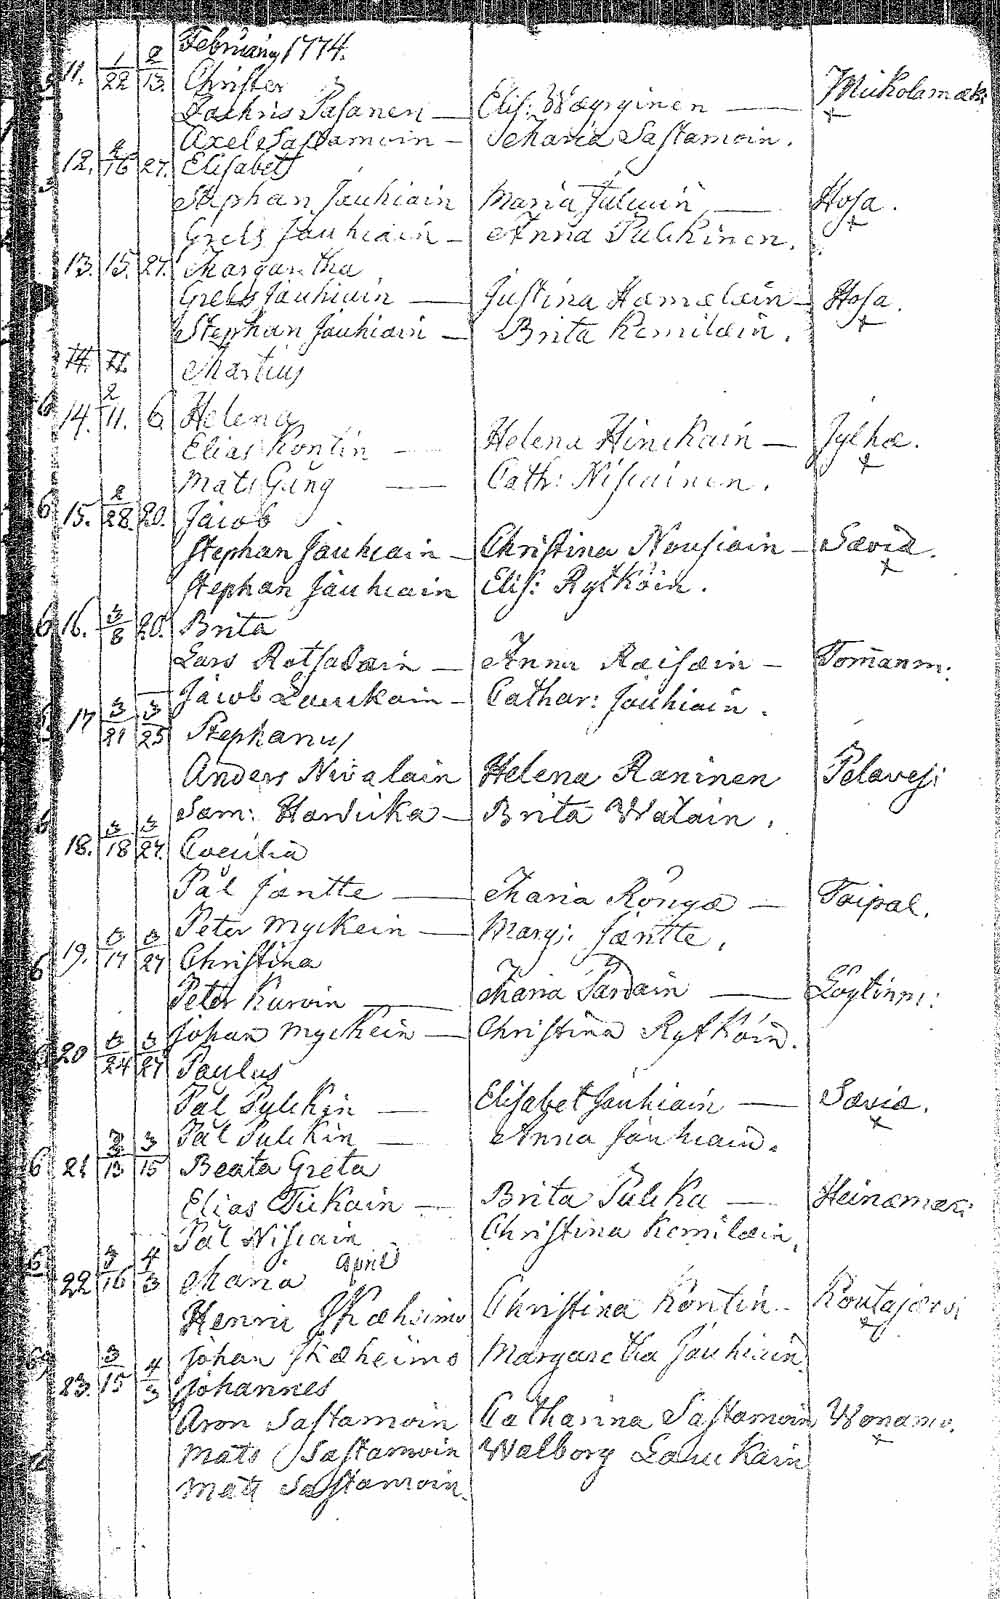 February 1774.
11. 1/22 2/13. Christer
Zachris Pasanen — Elis: Wäyrynen — Mickolamäki
Axel Sastamoin — Maria Sastamoin.
12. 2/16 27. Elisabeth
Stephan Jauhiain Maria Julkuin — Hosa.
Grels Jauhiain — Anna Pulckinen.
13. 15. 27. Margaretha
Grels Jauhiain — Justina Hämäläin — Hosa.
Stephan Jauhiain — Brita Kemiläin.
Martius
14. 2/11. 6. Helena
Elias Kontin — Helena Hinckain — Jylhä.
Mats Gäng — Cath: Niscainen.
15. 2/28. 20. Jacob
Stephan Jauhiain — Christina Nousiain — Sävid.
Stephan Jauhiain Elis: Rytköin.
16. 3/8 20. Brita
Lars Rotsalain — Anna Räisäin — Tom̄anm:
Jacob Laukain — Cathar: Jauhiain.
17 3/21 3/25 Stephanus
Anders Nivalain Helena Raninen Pelavesi
Sam: Hendricka — Brita Walain.
18. 3/18 3/27. Coecilia
Pål Jäntte — Maria Rönyä — Taipal.
Peter Myckein — Marg: Jäntte.
19. 3/17 3/27 Christina
Peter Kurvin — Maria Pardain — Löytinm:
Johan Myckein — Christina Rytköin.
20 3/24 3/27 Paulus
Pål Pulckin — Elisabet Jauhiain — Sävid.
Pål Pulckin — Anna Jauhiain.
21 3/13 3/15 Beata Greta
Elias Tickain — Brita Pulcka — Heinämäki
Pål Niscain Christina Kemiläin.
April
22 3/16 4/3 Maria
Henric Jkäheimo Christina Kontin — Koutajærvi
Johan Jkäheimo Margaretha Jauhiain.
23. 3/15 4/3 Johannes
Aron Sastamoin Catharina Sastamoin Wonamo.
Mats Sastamoin Walborg Laukain
Matts Sastamoin.